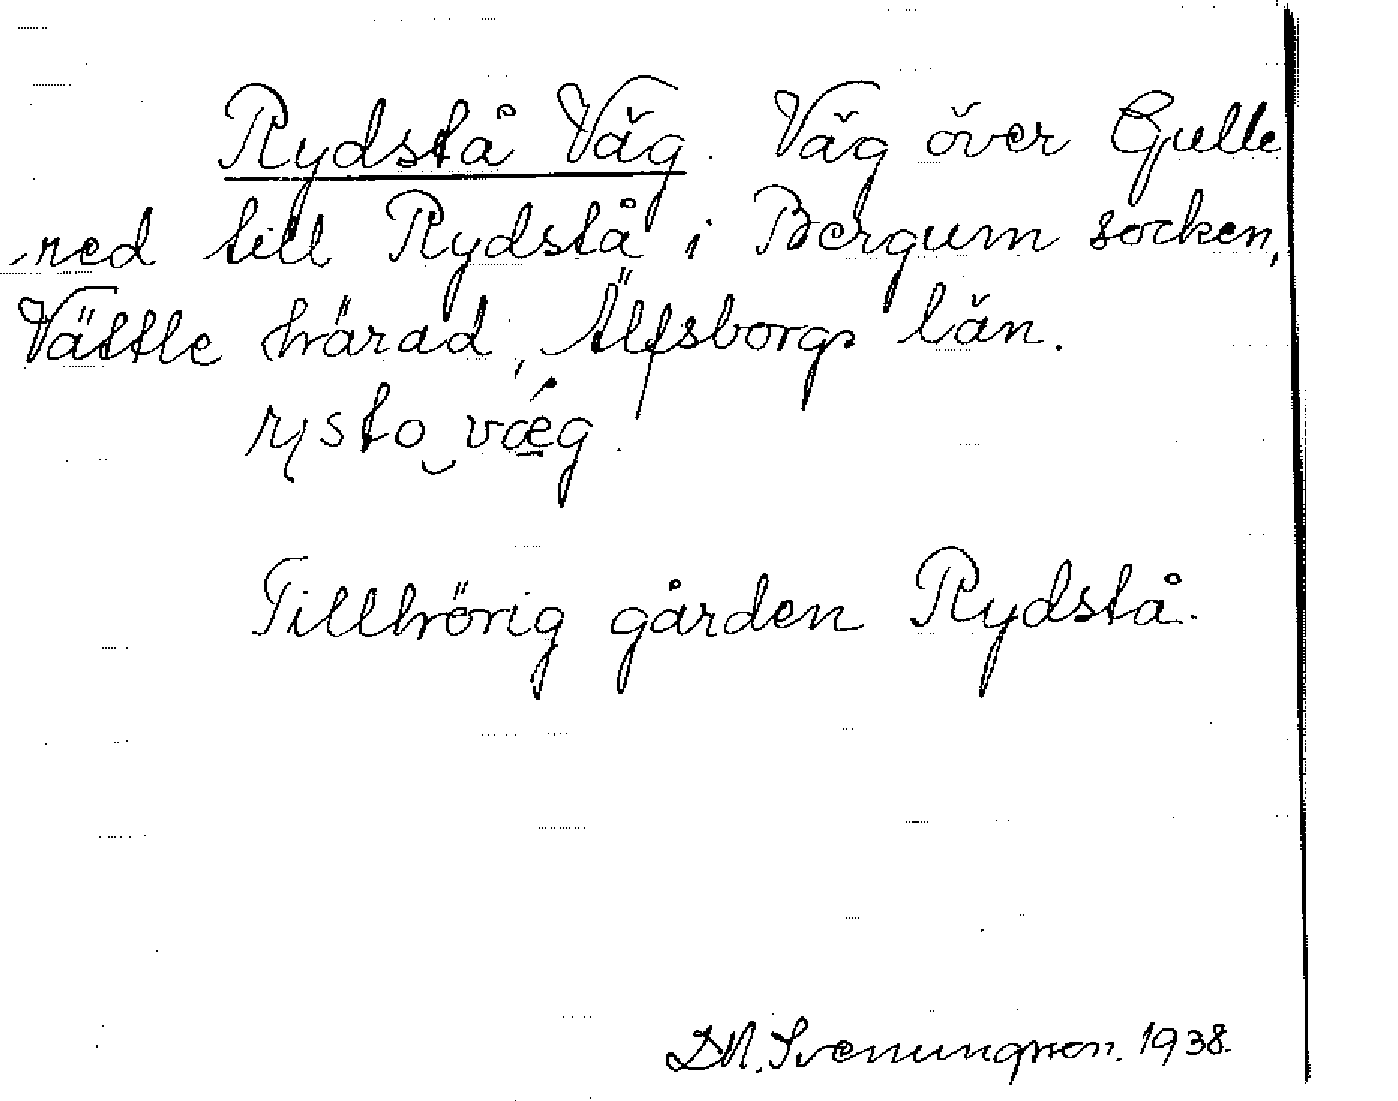 Rydstå Väg. Väg över Gulle
red till Rydstå i Bergum socken,
Vättle härad, Älfsborgs län.
rysto‿vǽ̲g.
Tillhörig gården Rydstå.
D.N. Svenungsson. 1938.